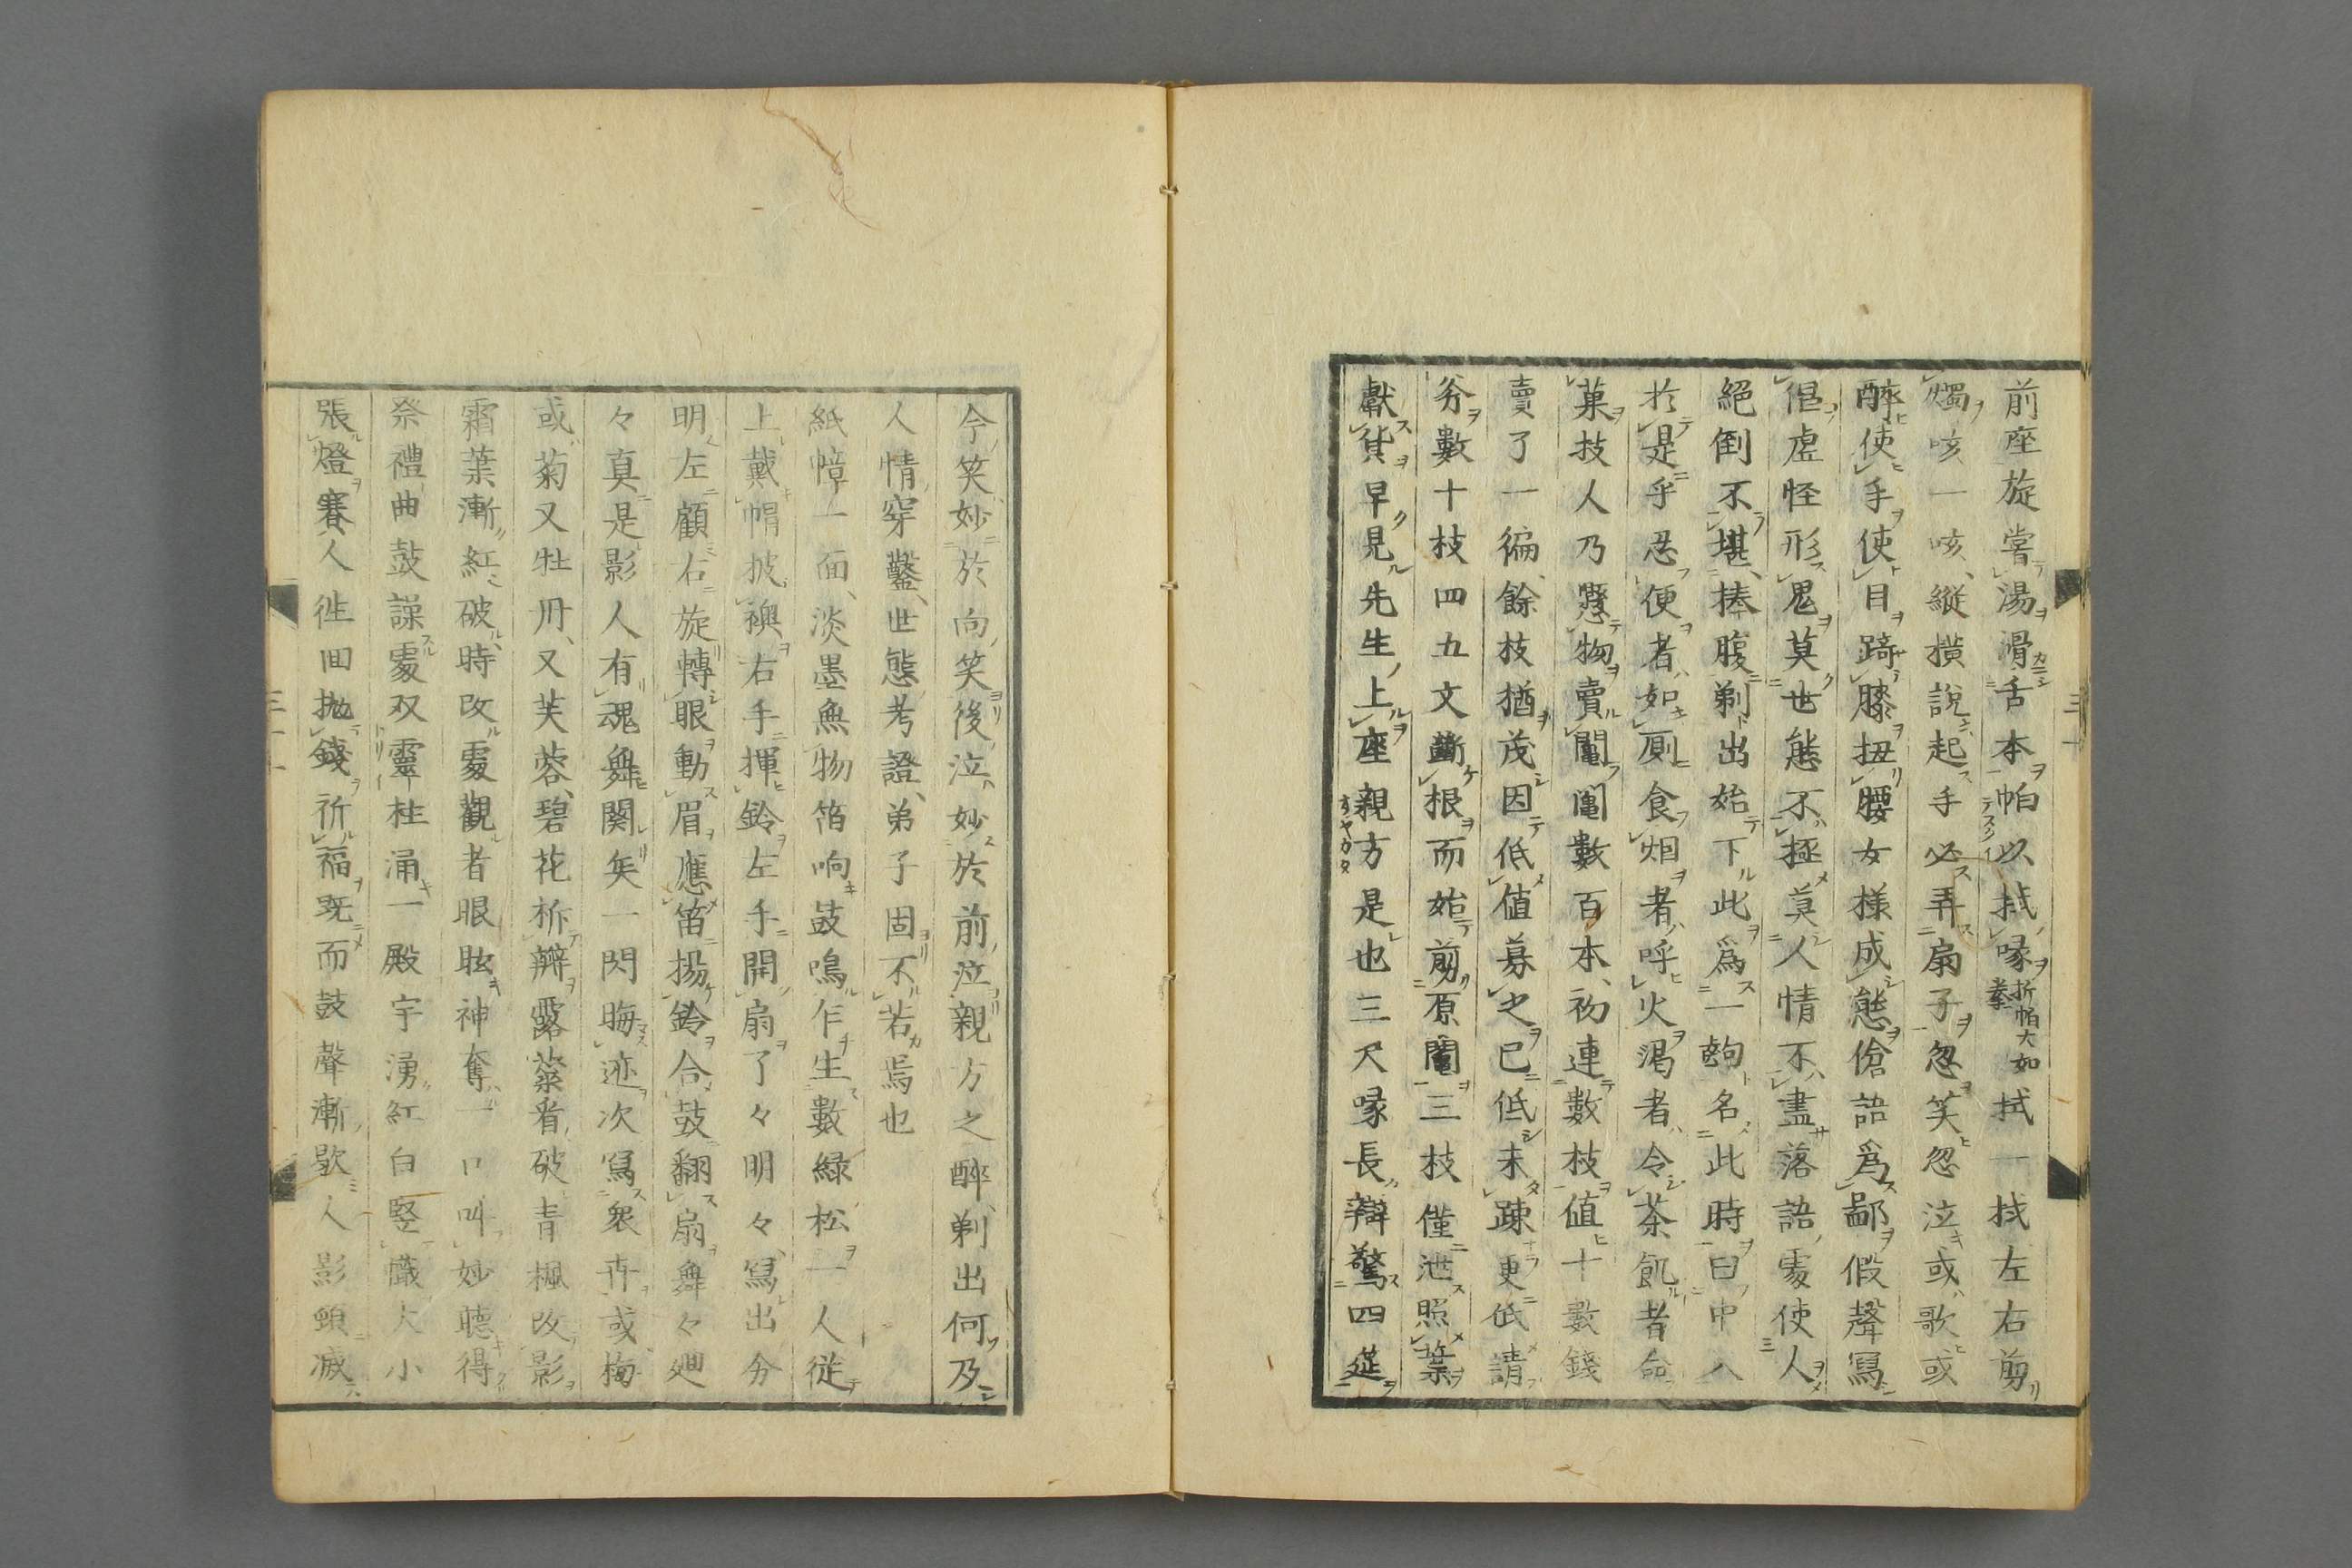 前座旋嘗湯滑舌本帕以拭喙折帕大如拳拭一拭左右剪
燭咳一咳縱横說起手必弄扇子忽笑忽泣或歌或
醉使手使目踦膝扭腰女様成態傖語爲鄙假聲寫
倡虚怪形鬼莫世態不極莫人情不盡落語處使人
絕倒不堪捧腹剃出始下此爲一齣名此時曰中入
於是乎忍便者如厠食烟者呼火渴者令茶飢者命
菓技人乃懸物賣鬮鬮數百本初連數枝値十數錢
賣了一徧餘枝猶茂因低値募之已低未踈更低請
券數十枝四五文斷根而始剪原鬮三枝僅泄照葉
獻貨早見先生上座親方是也三尺喙長辯驚四莚
今笑妙於向笑後泣妙於前泣親方之醉剃出何及
人情穿鑿世態考證弟子固不若焉也
紙幛一面淡墨無物笛响鼓鳴乍生數緑松一人従
上戴帽披襖右手揮鈴左手開扇了々明々寫出分
明左顧右旋轉眼動眉應笛揚鈴合鼓翻扇舞々廻
々真是影人有魂舞関矣一閃晦迹次寫衆卉或梅
或菊又牡丹又芙蓉碧花柝瓣露蘂看破青楓改影
霜葉漸紅破時改處觀者眼眩神奪一口叫妙聴得
祭禮曲鼓譟處双靈柱涌一殿宇湧紅白竪幟大小
張燈賽人徃回抛錢祈福既而鼓聲漸歇人影頓滅